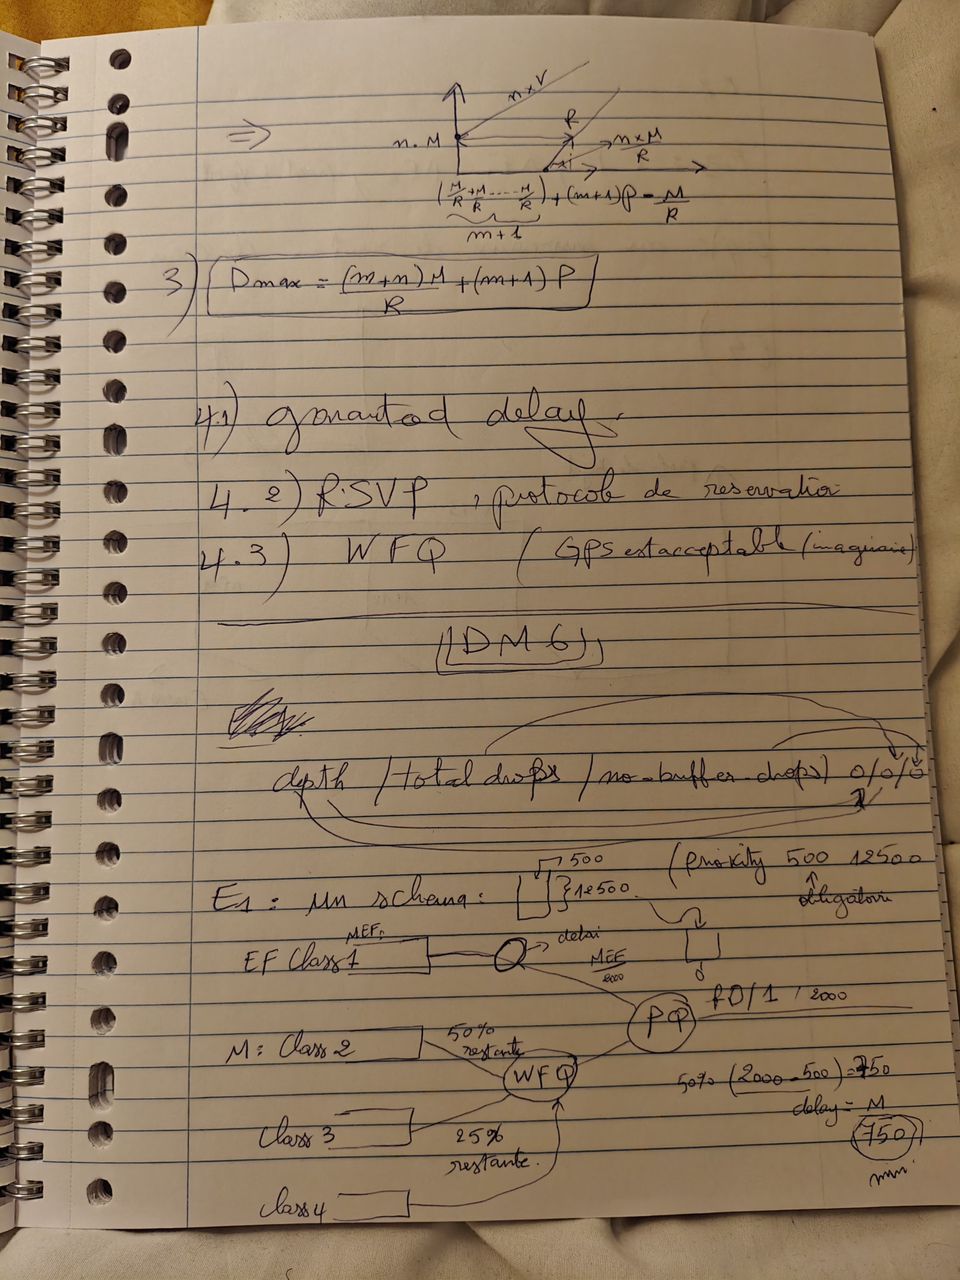 n x V
⇒ n.M R n x M / R
(M/R + M/R ..... M/R) + (m+1)P - M/R
m+1
3) Dmax = (m+n)M / R + (m+1) P
4.1) garanted delay.
4.2) RSVP, protocole de reservation
4.3) WFQ (GPS est acceptable (imaginaire)
DM 6
depth / total drops / no-buffer-drops) 0/0/0
E1: un schema: 500 } 12500 (priority 500 12500
obligatoire
EF Class 1 MEF: delai MEF / 2000
PQ f0/1 / 2000
M: Class 2 50% restante WFQ 50% (2000-500) = 750
delay = M / 750
Class 3 25% restante. min
Class 4